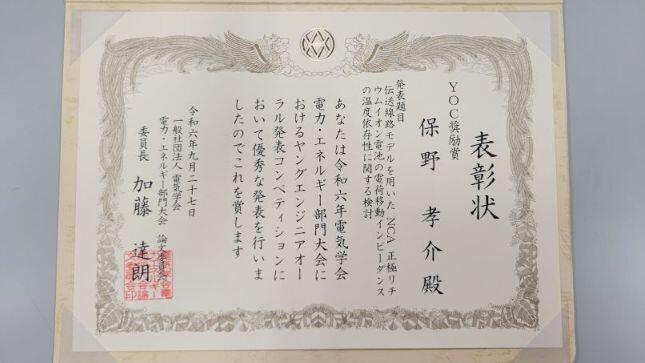 表彰状
YOC奨励賞
保野 孝介 殿
発表題目
伝送線路モデルを用いたNCA正極リチ
ウムイオン電池の電荷移動インピーダンス
の温度依存性に関する検討
あなたは令和六年電気学会
電力・エネルギー部門大会に
おけるヤングエンジニアオー
ラル発表コンペティションに
おいて優秀な発表を行いま
したのでこれを賞します
令和六年九月二十七日
一般社団法人 電気学会
電力・エネルギー部門大会 論文委員会
委員長 加藤 達朗